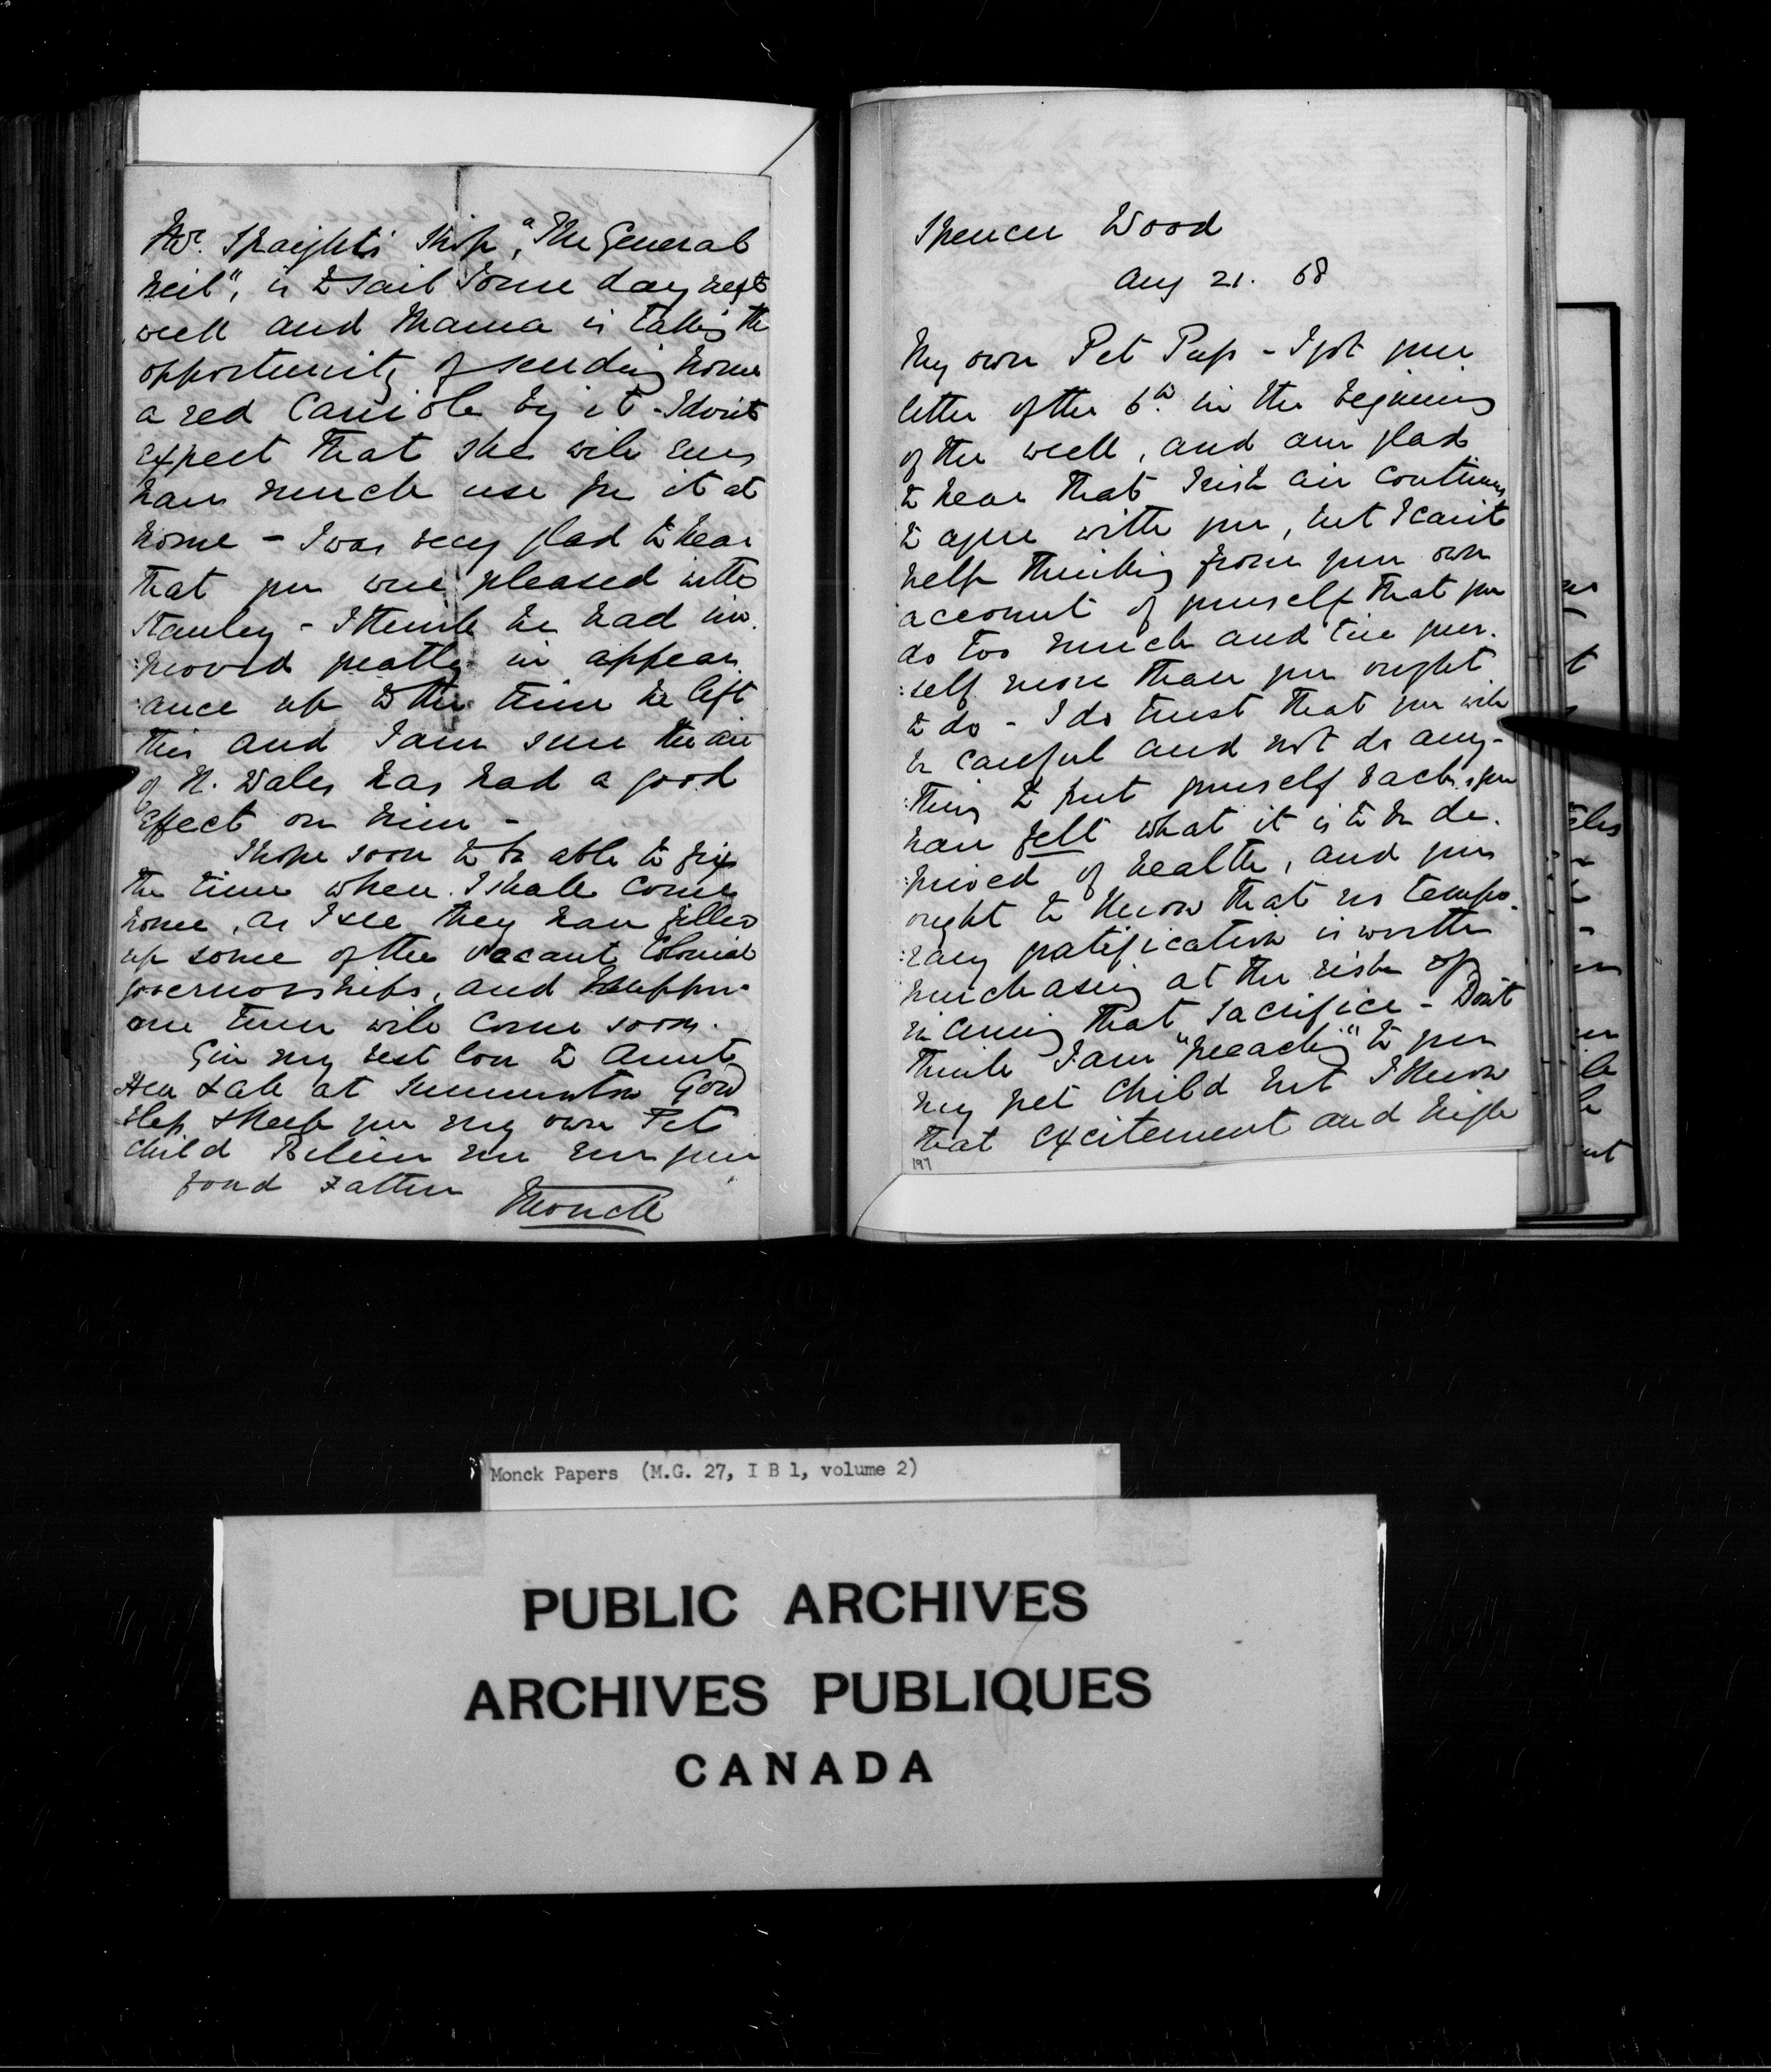 Mr. Spaight's Ship, "The General
Neil", is to sail some day next
week and Mama is taking the
opportunity of sending home
a red Carriole by it - I don't
expect that she will ever
have much use for it at
home - I was very glad to hear
that you were pleased with
Stanley - I think he had im-
:proved greatly in appear-
:ance up to the time he left
this and I am sure the air
of N. Wales has had a good
effect on him -
I hope soon to be able to fix
the time when I shall come
home, as I see they have filled
up some of the vacant Colonial
governorships, and I suppose
our turn will come soon.
Give my best love to Aunt
& all at God
bless & keep you my own Pet
child Believe me ever your
fond Father Monck
Spencer Wood
Aug 21. 68
My own Pet Pup - I got your
letter of the 6th in the beginning
of the week, and am glad
to hear that Irish air continues
to agree with you, but I can't
help thinking from your own
account of yourself that you
do too much and tire your-
:self more than you ought
to do - I do trust that you will
be careful and not do any-
:thing to put yourself back, you
have felt what it is to be de-
:prived of health, and you
ought to know that no tempo-
:rary gratification is worth
purchasing at the risk of
incurring that sacrifice - Don't
think I am "preaching" to you
my pet child but I know
that excitement and high
197
Monck Papers (M.G. 27, I B 1, volume 2)
PUBLIC ARCHIVES
ARCHIVES PUBLIQUES
CANADA